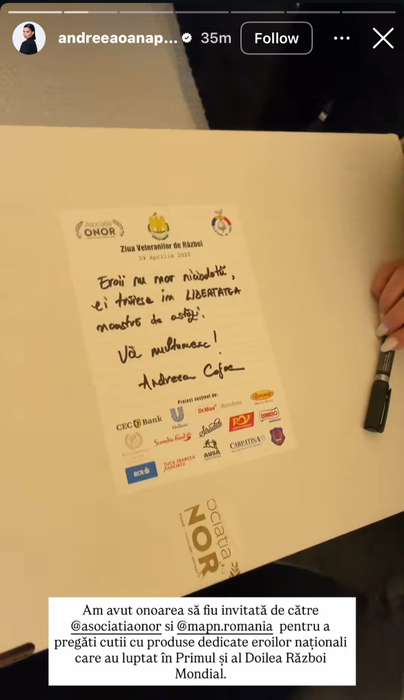 andreeaoanap... 35m Follow
Asociația
ONOR
Ziua Veteranilor de Război
29 Aprilie 2025
Eroii nu mor niciodată,
ei trăiesc în LIBERTATEA
noastră de astăzi.
Vă mulțumesc!
Andreea Cojoc
Proiect susținut de:
CEC Bank
Unilever
Dr.Max+
România
Scandia Food
JYSK
BIMBO
AUSA
CARPATISA
BCR
ZUCA ZBARCEA
ASOCIATII
ociația
NOR
Am avut onoarea să fiu invitată de către
@asociatiaonor si @mapn.romania pentru a
pregăti cutii cu produse dedicate eroilor naționali
care au luptat în Primul și al Doilea Război
Mondial.